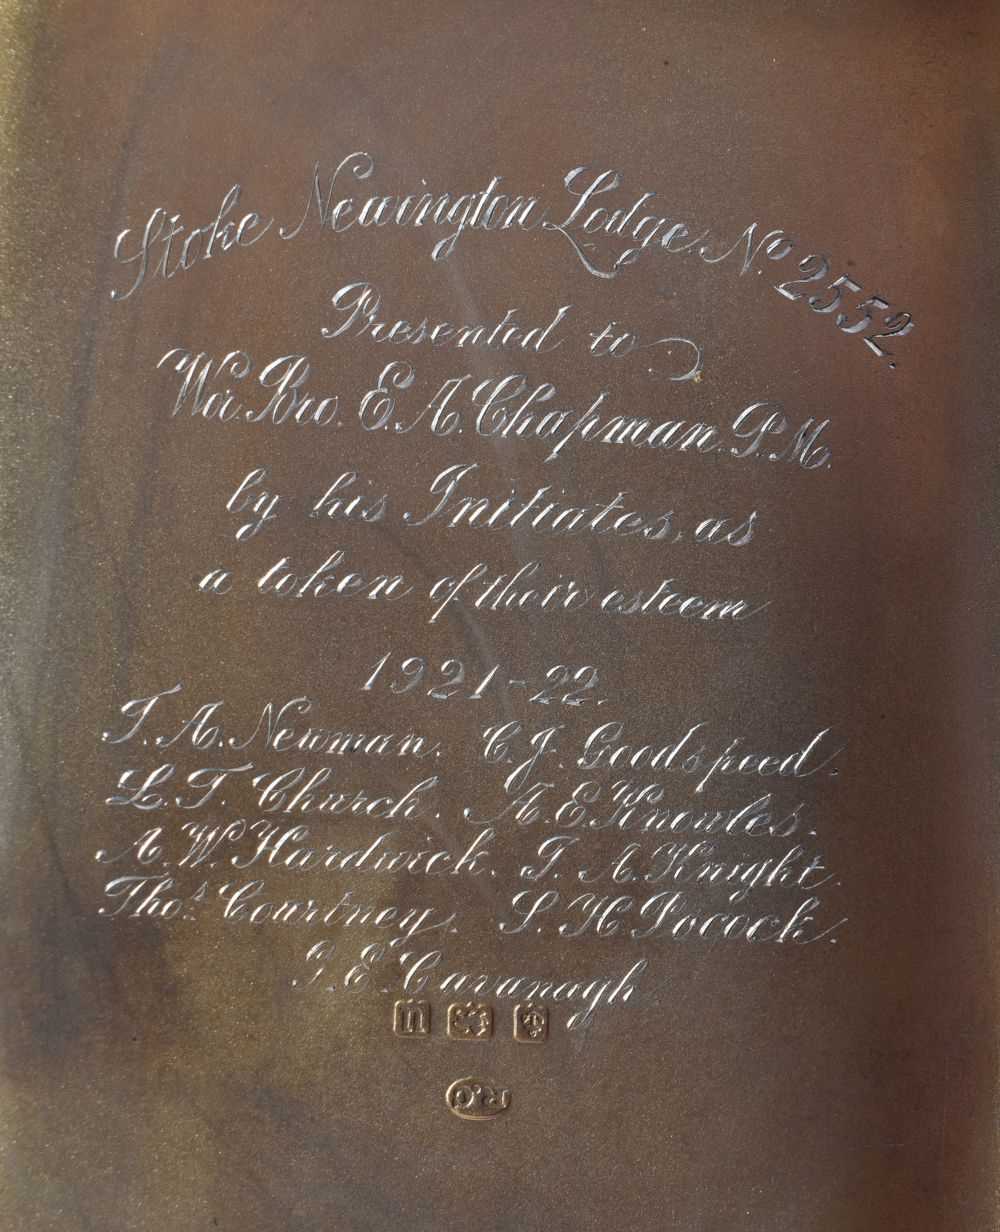 Stoke Newington Lodge No 2552.
Presented to
Wor. Bro. E. A. Chapman. P. M.
by his Initiates, as
a token of their esteem
1921-22.
T. A. Newman. C. J. Goodspeed.
L. T. Church. A. E. Knowles.
A. W. Hardwick. T. A. Knight.
Thos. Courtney. S. H. Pocock.
G. E. Cavanagh
R.C